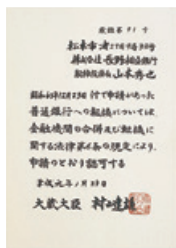 蔵銀第 91 号
松本市
株式会社 長野相互銀行
取締役社長 山本秀也
昭和63年12月23日 付で申請があった
普通銀行への転換については
金融機関の合併及び転換に
関する法律第6条の規定により
申請のとおり認可する
平成元年1月
大蔵大臣 村山達雄